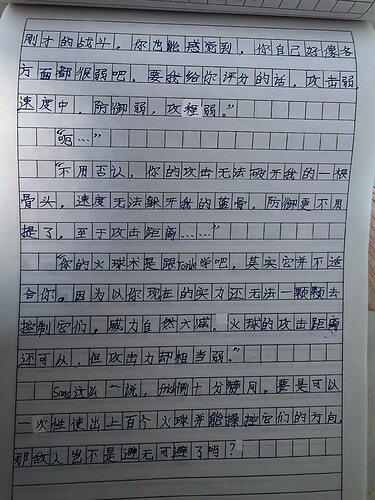 刚才的战斗，你也能感觉到，你自己好像各
方面都很弱吧。要我给你评分的话，攻击弱，
速度中，防御弱，攻程弱。"
"呃……"
"不用否认，你的攻击无法破开我的一根
骨头，速度无法躲开我的蓝骨，防御更不用
提了，至于攻击距离……"
"你的火球术是跟Toriel学吧，其实它并不适
合你。因为以你现在的实力还无法一颗颗去
控制它们，威力自然大减。火球的攻击距离
还可以，但攻击力却相当弱。"
Sans这么一说，Frisk倒十分赞同。要是可以
一次性使出上百个火球并能操控它们的方向，
那敌人岂不是避无可避了吗？